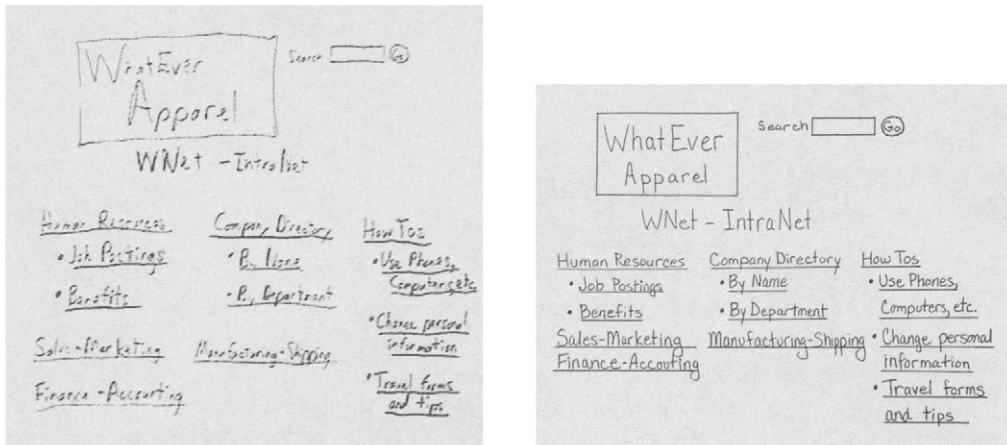 WhatEver
Apparel
Search
Go
WNet - IntraNet
Human Resources
• Job Postings
• Benefits
Sales-Marketing
Finance-Accounting
Company Directory
• By Name
• By Department
Manufacturing-Shipping
How Tos
• Use Phones,
Computers, etc.
• Change personal
information
• Travel forms
and tips
WhatEver
Apparel
Search
Go
WNet - IntraNet
Human Resources
• Job Postings
• Benefits
Sales-Marketing
Finance-Accouting
Company Directory
• By Name
• By Department
Manufacturing-Shipping
How Tos
• Use Phones,
Computers, etc.
• Change personal
information
• Travel forms
and tips